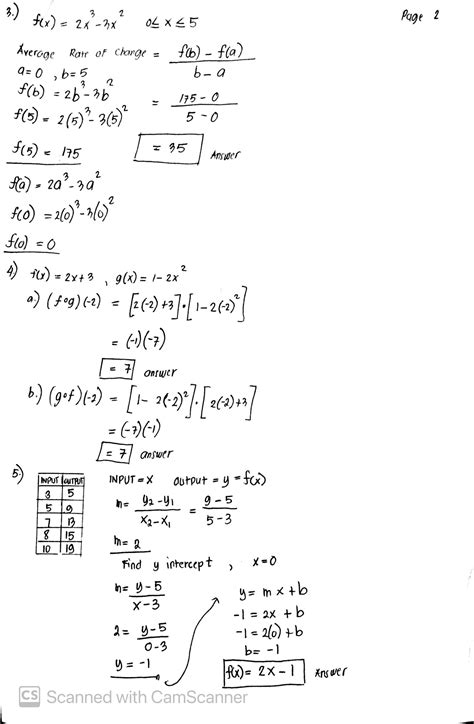 Page 2
3.) f(x) = 2x³-3x² 0≤x≤5
Average Rate of Change = f(b) - f(a) / b - a
a=0, b=5
f(b) = 2b³-3b²
= 175-0 / 5-0
f(5) = 2(5)³-3(5)²
f(5) = 175
= 35 Answer
f(a) = 2a³-3a²
f(0) = 2(0)³-3(0)²
f(0) = 0
4) f(x) = 2x+3, g(x) = 1-2x²
a.) (f∘g)(-2) = [2(-2)+3]·[1-2(-2)²]
= (-1)(-7)
= 7 answer
b.) (g∘f)(-2) = [1-2(-2)²]·[2(-2)+3]
= (-7)(-1)
= 7 answer
5.)
INPUT OUTPUT
3 5
5 9
7 13
8 15
10 19
INPUT = X OUTPUT = y = f(x)
m= y₂-y₁ / x₂-x₁ = 9-5 / 5-3
m= 2
Find y intercept, x=0
m= y-5 / x-3
2= y-5 / 0-3
y = -1
y= mx+b
-1 = 2x+b
-1 = 2(0)+b
b= -1
f(x)= 2x-1 Answer
CS Scanned with CamScanner